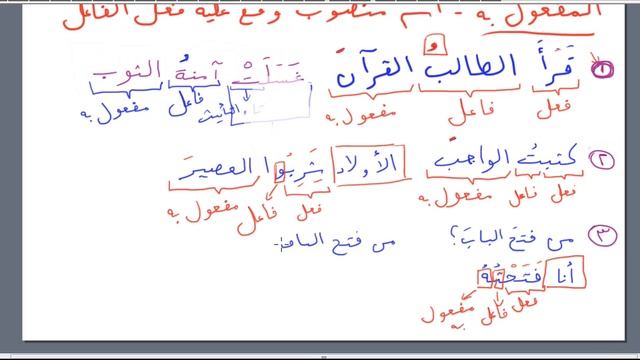 المفعول به - اسم منصوب وقع عليه فعل الفاعل
① قَرَأَ الطالبُ القرآنَ غَسَلَتْ آمنةُ الثوب
فعل فاعل مفعول به التأنيث فاعل مفعول به
② كتبتُ الواجبَ الأولاد شَرِبُوا العصيرَ
فعل فاعل مفعول به فعل فاعل مفعول به
③ من فتحَ البابَ؟ من فتح
أنا فَتَحْتُهُ
فعل فاعل مفعول به